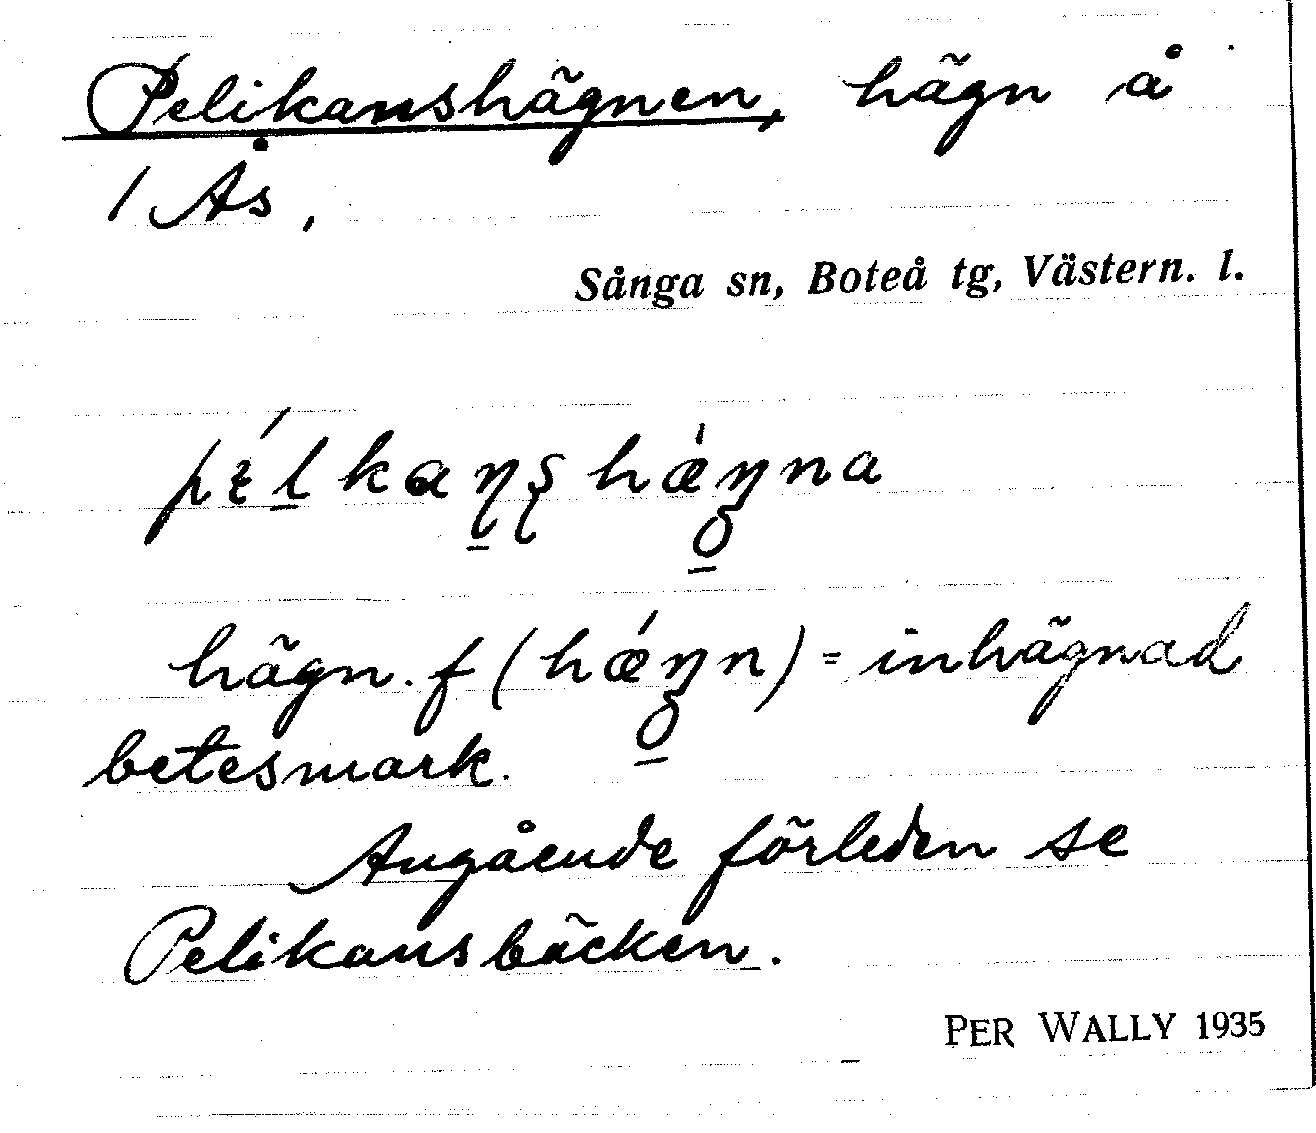 Pelikanshägnen, hägn å
1 Ås,
Sånga sn, Boteå tg, Västern. l.
hägn. f (hǽŋn) = inhägnad
betesmark.
Angående förleden se
Pelikansbäcken.
PER WALLY 1935